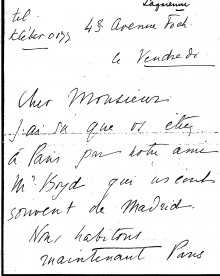 Laguenne
tel
Kléber 0 ... 43 Avenue Foch
le Vendredi
Cher Monsieur
J'ai su que vs etiez
à Paris par notre ami
Mr Boyd qui ns écrit
souvent de Madrid.
Nous habitons
maintenant Paris